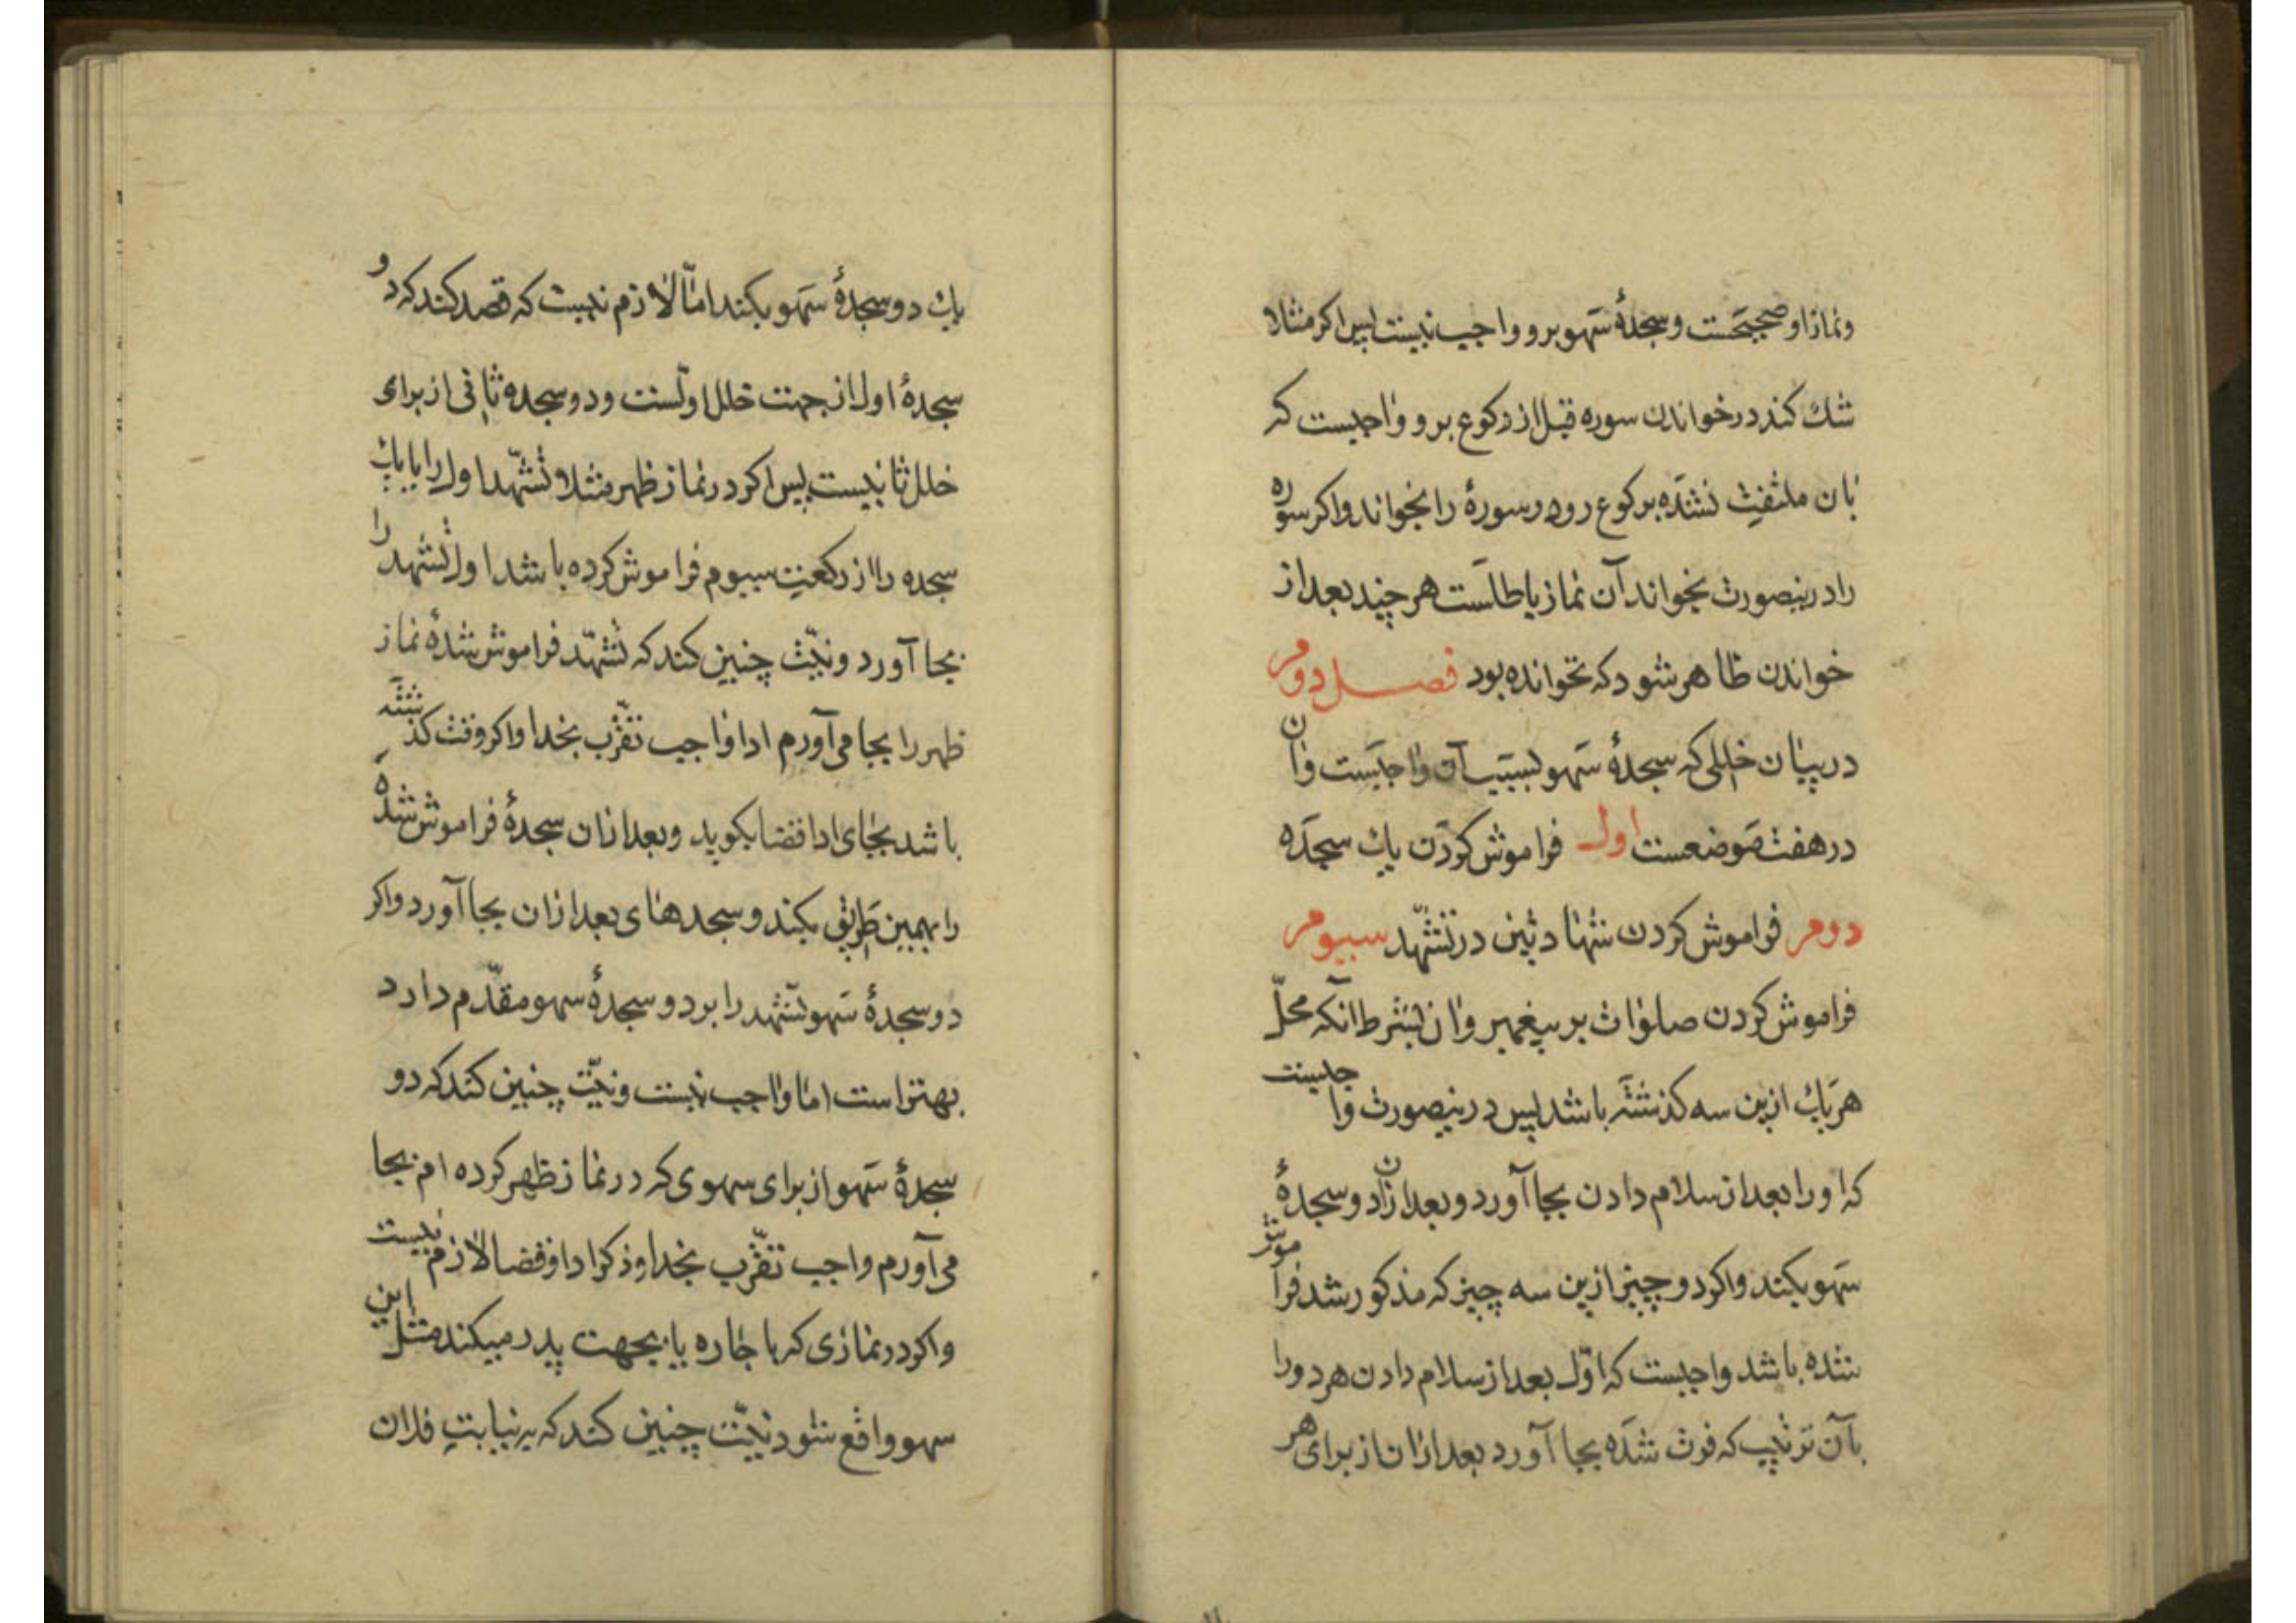 ونماز او صحیحست وسجدهٔ سهو برو واجب نیست پس اکر مثلا
شك کند در خواندن سوره قبل از رکوع برو واجبست که
بان ملتفت نشده برکوع رود وسورهٔ را نخواند واکر سوره
را درینصورت بخواند آن نماز باطلست هر چند بعد از
خواندن ظاهر شود که نخوانده بود فصل دوم
در بیان خللی که سجدهٔ سهو بسبب آن واجبست وان
در هفت موضعست اول فراموش کردن یك سجده
دوم فراموش کردن شهادتین در تشهد سیوم
فراموش کردن صلوات بر پیغمبر وان بشرط آنکه محلّ
هر یك ازین سه کذشته باشد پس درینصورت واجبست
که او را بعد از سلام دادن بجا آورد وبعد ازان دو سجدهٔ
سهو بکند واکر دو چیز ازین سه چیز که مذکور شد فراموش
شده باشد واجبست که اوّل بعد از سلام دادن هر دو را
بآن ترتیب که فوت شده بجا آورد بعد ازان از برای هر
یك دو سجدهٔ سهو بکند امّا لازم نیست که قصد کند که دو
سجدهٔ اول از جهت خلل اوّلست ودو سجده ثانی از برای
خلل ثانیست پس اکر در نماز ظهر مثلا تشهّد اول را با یك
سجده را از رکعت سیوم فراموش کرده باشد اول تشهد را
بجا آورد ونیّت چنین کند که تشهّد فراموش شدهٔ نماز
ظهر را بجا می آورم ادا واجب تقرّب بخدا واکر وقت کذشته
باشد بجای ادا قضا بکوید وبعد ازان سجدهٔ فراموش شده
را بهمین طریق بکند وسجدهای بعد ازان بجا آورد واکر
دو سجدهٔ سهو تشهد را بر دو سجدهٔ سهو مقدّم دارد
بهتر است اما واجب نیست ونیّت چنین کند که دو
سجدهٔ سهو از برای سهوی که در نماز ظهر کرده ام بجا
می آورم واجب تقرّب بخدا وذکر ادا وقضا لازم نیست
واکر در نمازی که باجاره یا بجهت پدر میکند مثل این
سهو واقع شود نیّت چنین کند که به نیابت فلان